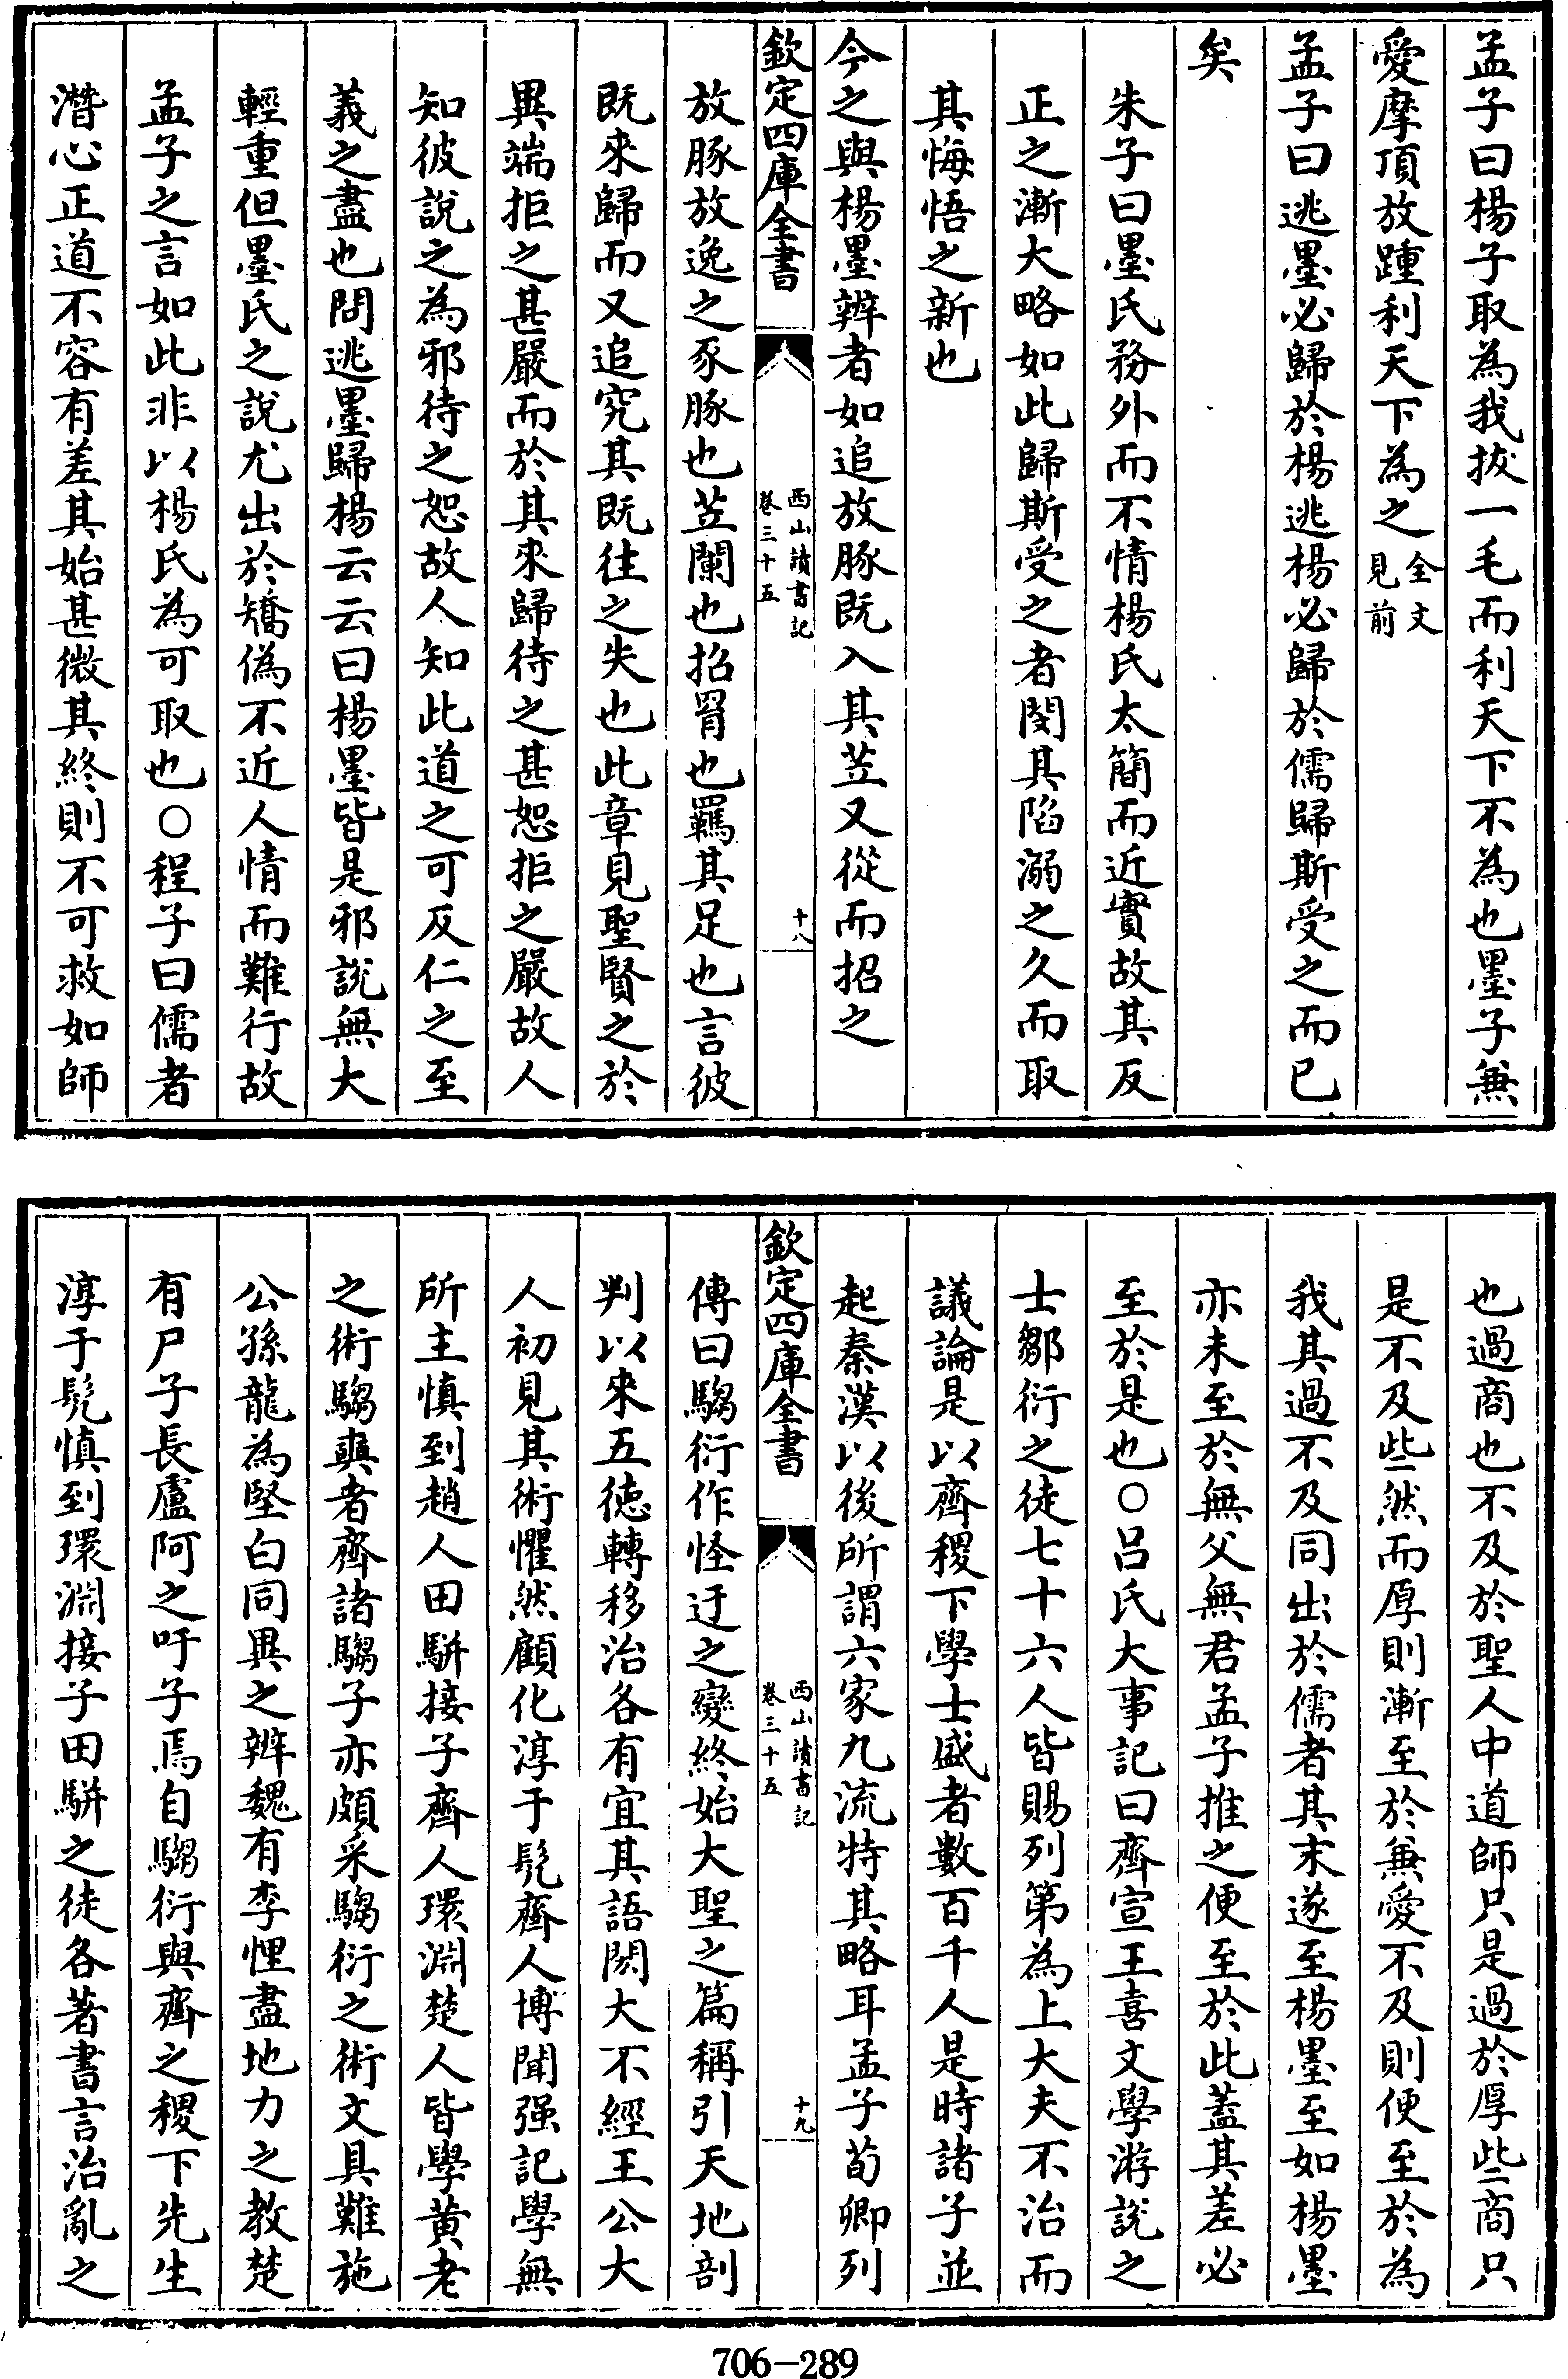 孟子曰楊子取為我拔一毛而利天下不為也墨子兼
愛摩頂放踵利天下為之全文見前
孟子曰逃墨必歸於楊逃楊必歸於儒歸斯受之而已
矣
朱子曰墨氏務外而不情楊氏太簡而近實故其反
正之漸大略如此歸斯受之者閔其陷溺之久而取
其悔悟之新也
今之與楊墨辨者如追放豚既入其苙又從而招之
欽定四庫全書
西山讀書記
卷三十五
十八
放豚放逸之豕豚也苙闌也招罥也羈其足也言彼
既來歸而又追究其既往之失也此章見聖賢之於
異端拒之甚嚴而於其來歸待之甚恕拒之嚴故人
知彼說之為邪待之恕故人知此道之可反仁之至
義之盡也問逃墨歸楊云云曰楊墨皆是邪說無大
輕重但墨氏之說尤出於矯偽不近人情而難行故
孟子之言如此非以楊氏為可取也○程子曰儒者
潛心正道不容有差其始甚微其終則不可救如師
也過商也不及於聖人中道師只是過於厚些商只
是不及些然而厚則漸至於兼愛不及則便至於為
我其過不及同出於儒者其末遂至楊墨至如楊墨
亦未至於無父無君孟子推之便至於此蓋其差必
至於是也○呂氏大事記曰齊宣王喜文學游說之
士鄒衍之徒七十六人皆賜列第為上大夫不治而
議論是以齊稷下學士盛者數百千人是時諸子並
起秦漢以後所謂六家九流特其略耳孟子荀卿列
欽定四庫全書
西山讀書記
卷三十五
十九
傳曰騶衍作怪迂之變終始大聖之篇稱引天地剖
判以來五德轉移治各有宜其語閎大不經王公大
人初見其術懼然顧化淳于髡齊人博聞强記學無
所主慎到趙人田駢接子齊人環淵楚人皆學黃老
之術騶奭者齊諸騶子亦頗采騶衍之術文具難施
公孫龍為堅白同異之辨魏有李悝盡地力之教楚
有尸子長盧阿之吁子焉自騶衍與齊之稷下先生
淳于髡慎到環淵接子田駢之徒各著書言治亂之
706-289